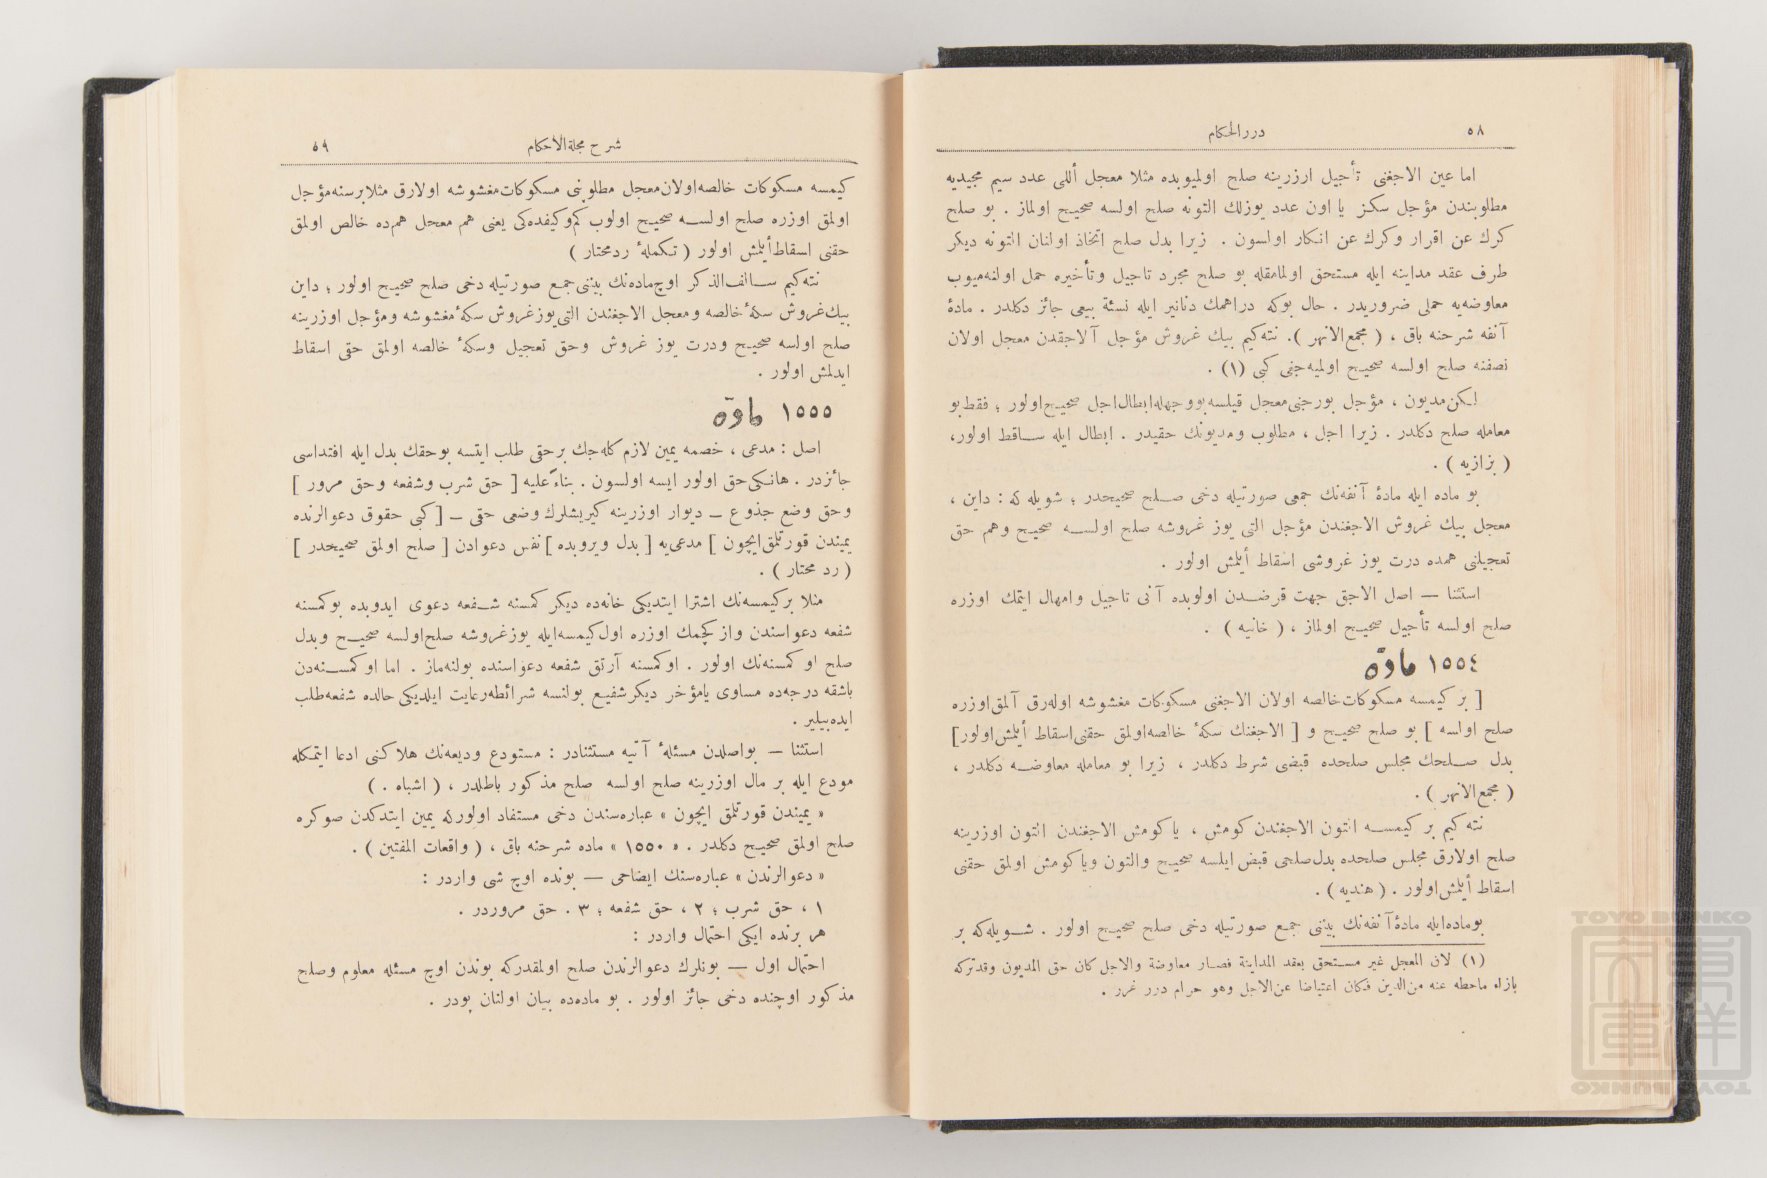 ٥٨
دررالحكام
اما عين الاجغنى تأجيل ارزرينه صلح اولميوبده مثلا معجل أللى عدد سيم مجيديه
مطلوبندن مؤجل سكز يا اون عدد يوزلك التونه صلح اولسه صحيح اولماز . بو صلح
كرك عن اقرار وكرك عن انكار اولسون . زيرا بدل صلح اتخاذ اولنان التونه ديكر
طرف عقد مداينه ايله مستحق اولمامقله بو صلح مجرد تاجيل وتأخيره حمل اولنه‌ميوب
معاوضه‌يه حملى ضروريدر . حال بوكه دراهمك دنانير ايله نسئة بيعى جائز دكلدر . مادۀ
آنفه شرحنه باق ، ( مجمع‌الانهر ). نته‌كيم بيك غروش مؤجل آلاجقدن معجل اولان
نصفنه صلح اولسه صحيح اولميه‌جغى كبى (١) .
لكن مديون ، مؤجل بورجنى معجل قيلسه بووجهله ابطال اجل صحيح اولور ؛ فقط بو
معامله صلح دكلدر . زيرا اجل ، مطلوب ومديونك حقيدر . ابطال ايله ساقط اولور،
( بزازيه ) .
بو ماده ايله مادۀ آنفه‌نك جمعى صورتيله دخى صلح صحيحدر ؛ شويله كه : داين ،
معجل بيك غروش الاجغندن مؤجل التى يوز غروشه صلح اولسه صحيح وهم حق
تعجيلنى همده درت يوز غروشى اسقاط أيلمش اولور .
استثنا — اصل الاجق جهت قرضدن اولوبده آنى تاجيل وامهال ايتمك اوزره
صلح اولسه تأجيل صحيح اولماز ، ( خانيه ) .
١٥٥٤ مادّه
[ بر كيمسه مسكوكات خالصه اولان الاجغنى مسكوكات مغشوشه اوله‌رق آلمق اوزره
صلح اولسه ] بو صلح صحيح و [ الاجغنك سكۀ خالصه اولمق حقنى اسقاط أيلمش اولور]
بدل صلحك مجلس صلحده قبضى شرط دكلدر ، زيرا بو معامله معاوضه دكلدر ،
( مجمع‌الانهر ) .
نته‌كيم بر كيمسه التون الاجغندن كومش ، يا كومش الاجغندن التون اوزرينه
صلح اولارق مجلس صلحده بدل صلحى قبض ايلسه صحيح والتون ويا كومش اولمق حقنى
اسقاط أيلمش اولور . ( هنديه ) .
بوماده‌ايله مادۀ آنفه‌نك بيننى جمع صورتيله دخى صلح صحيح اولور . شويله‌كه بر
(١) لان المعجل غير مستحق بعقد المداينة فصار معاوضة والاجل كان حق المديون وقدتركه
بازاء ماحطه عنه من‌الدين فكان اعتياضا عن‌الاجل وهو حرام درر غرر .
شرح مجلة‌الاحكام
٥٩
كيمسه مسكوكات خالصه‌اولان معجل مطلوبنى مسكوكات مغشوشه اولارق مثلا برسنه مؤجل
اولمق اوزره صلح اولسه صحيح اولوب كم وكيفده‌كى يعنى هم معجل هم‌ده خالص اولمق
حقنى اسقاط أيلمش اولور ( تكملۀ ردمحتار )
نته‌كيم سالف‌الذكر اوچ ماده‌نك بيننى جمع صورتيله دخى صلح صحيح اولور ؛ داين
بيك غروش سكۀ خالصه ومعجل الاجغندن التى يوز غروش سكۀ مغشوشه ومؤجل اوزرينه
صلح اولسه صحيح ودرت يوز غروش وحق تعجيل وسكۀ خالصه اولمق حقى اسقاط
ايدلمش اولور .
١٥٥٥ مادّه
اصل : مدعى ، خصمه يمين لازم كله‌جك برحقى طلب ايتسه بوحقك بدل ايله افتداسى
جائزدر . هانكى حق اولور ايسه اولسون . بناءً عليه [ حق شرب وشفعه وحق مرور ]
وحق وضع جذوع – ديوار اوزرينه كيريشلرك وضعى حقى – [ كبى حقوق دعوالرنده
يميندن قورتلمق ايچون ] مدعى‌يه [ بدل ويروبده ] نفس دعوادن [ صلح اولمق صحيحدر ]
( رد محتار ) .
مثلا بركيمسه‌نك اشترا ايتديكى خانه‌ده ديكر كمسنه شفعه دعوى ايدوبده بوكمسنه
شفعه دعواسندن واز كچمك اوزره اول كيمسه ايله يوز غروشه صلح اولسه صحيح وبدل
صلح او كمسنه‌نك اولور . اوكمسنه آرتق شفعه دعواسنده بولنه‌ماز . اما اوكمسنه‌دن
باشقه درجه‌ده مساوى يامؤخر ديكر شفيع بولنسه شرائطه رعايت ايلديكى حالده شفعه طلب
ايده‌بيلير .
استثنا — بواصلدن مسئلۀ آتيه مستثنادر : مستودع وديعه‌نك هلاكنى ادعا ايتمكله
مودع ايله بر مال اوزرينه صلح اولسه صلح مذكور باطلدر ، ( اشباه . )
« يميندن قورتلمق ايچون » عباره‌سندن دخى مستفاد اولورکه يمين ايتدكدن صوكره
صلح اولمق صحيح دكلدر . « ١٥٥٠ » ماده شرحنه باق ، ( واقعات المفتين ) .
« دعوالرندن » عباره‌سنك ايضاحى — بونده اوچ شى واردر :
١ ، حق شرب ؛ ٢ ، حق شفعه ؛ ٣ . حق مروردر .
هر برنده ايكى احتمال واردر :
احتمال اول — بونلرك دعوالرندن صلح اولمقدركه بوندن اوچ مسئله معلوم وصلح
مذكور اوچنده دخى جائز اولور . بو ماده‌ده بيان اولنان بودر .
TOYO BUNKO
東洋文庫
TOYO BUNKO